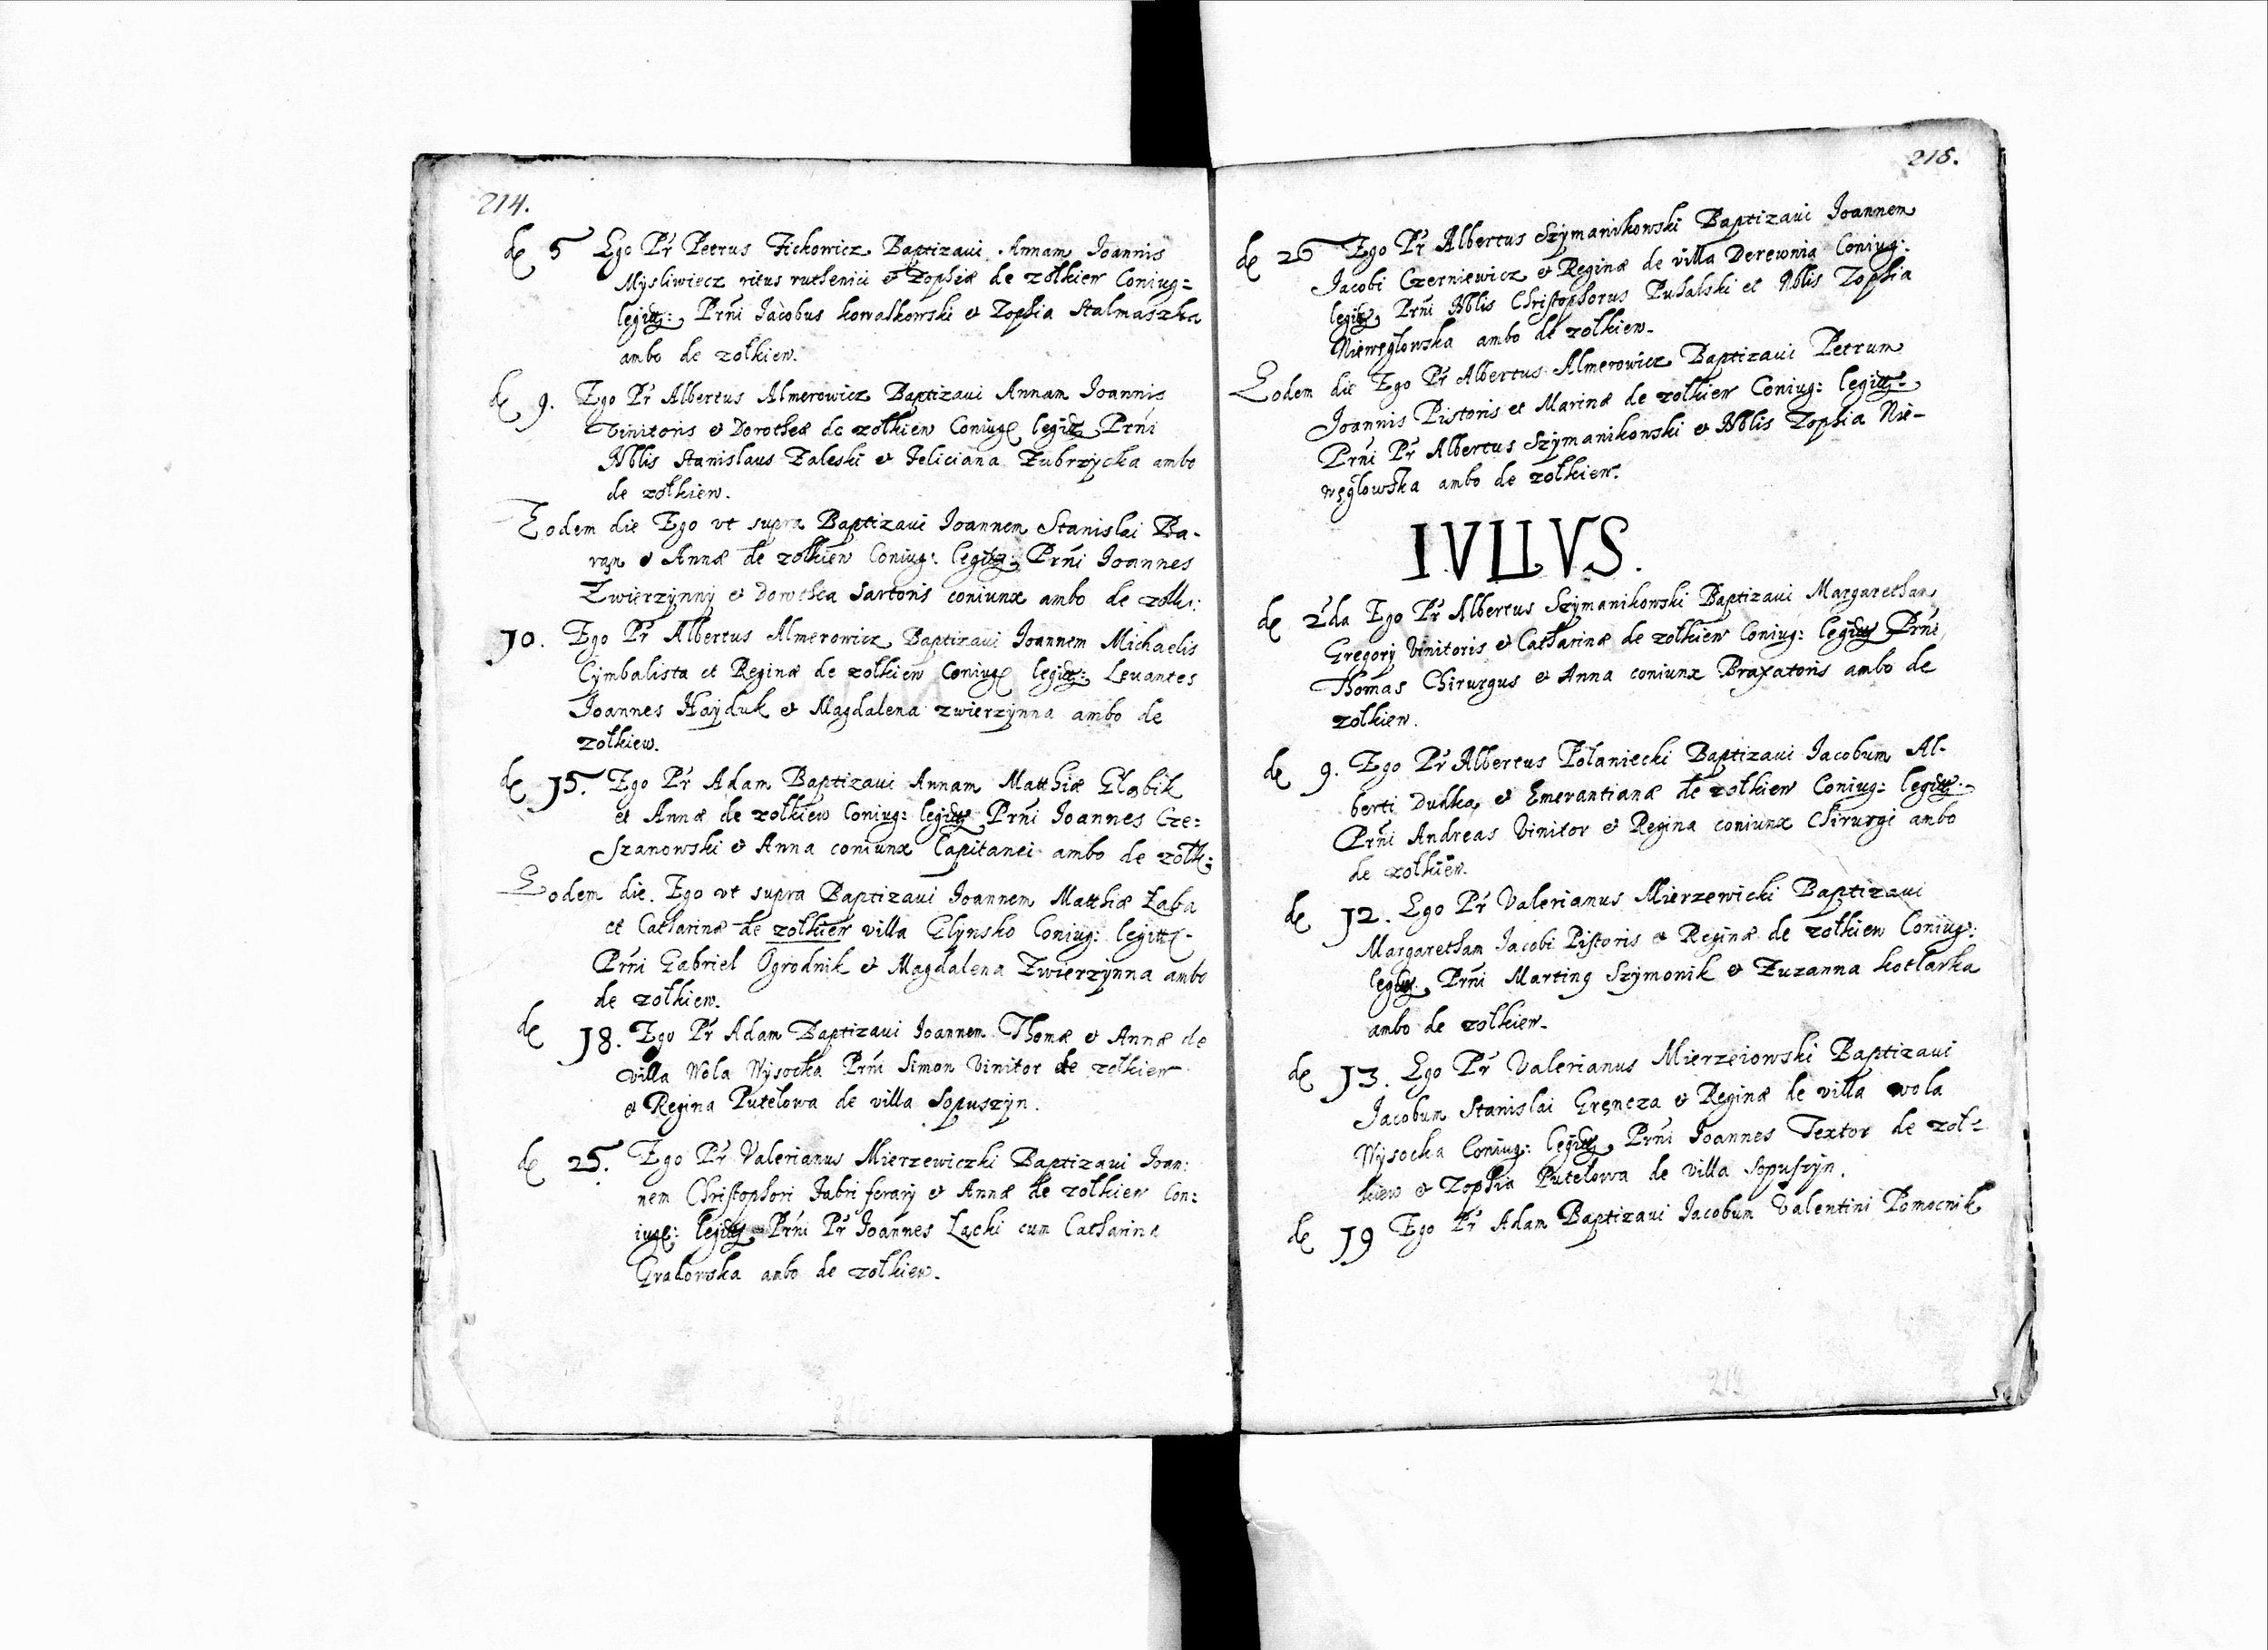 214.
de 5 Ego Pr Petrus Fickowicz Baptizaui Annam Joannis
Mysliwiecz ritus ruthenici et Zophiæ de zołkiew Coniug=
legitt: Prni Jacobus kowalkowski et Zophia Stalmaszka
ambo de zołkiew.
de 9. Ego Pr Albertus Almerowicz Baptizaui Annam Joannis
Vinitoris et Dorotheæ de zołkiew Coniug legitt Prni
Nblis Stanislaus Zaleski et Feliciana Zubrzycka ambo
de zołkiew.
Eodem die Ego vt supra Baptizaui Joannem Stanislai Ba-
ran et Annæ de zołkiew Coniug: legitt: Prni Joannes
Zwierzynny et Dorothea Sartoris coniunx ambo de zołki:
10. Ego Pr Albertus Almerowicz Baptizaui Joannem Michaelis
Cymbalista et Reginæ de zołkiew Coniug legitt: Leuantes
Joannes Hayduk et Magdalena zwierzynna ambo de
zołkiew.
de 15. Ego Pr Adam Baptizaui Annam Matthiæ Głąbik
et Annæ de zołkiew Coniug: legitt Prni Joannes Cze=
Szanowski et Anna coniunx Capitanei ambo de zołk:
Eodem die. Ego vt supra Baptizaui Joannem Matthiæ Łaba
et Catharinæ de zołkiew villa Glynsko Coniug: legitt-
Prni Gabriel Ogrodnik et Magdalena Zwierzynna ambo
de zołkiew.
de 18. Ego Pr Adam Baptizaui Joannem Thomæ et Annæ de
villa Wola Wysocka Prni Simon Vinitor de zołkiew
et Regina Putełowa de villa Sopuszyn.
de 25. Ego Pr Valerianus Mierzewiczki Baptizaui Joan:
nem Christophori Fabri ferarij et Annæ de zołkiew Con:
iug: legitt Prni Pr Joannes Łącki cum Catharina
Grabowska ambo de zołkiew.
215.
de 26 Ego Pr Albertus Szymanikowski Baptizaui Joannem
Jacobi Czerniewicz et Reginæ de villa Derewnia Coniug:
legitt Prni Nblis Christophorus Puhalski et Nblis Zophia
Niewęglowska ambo de zołkiew.
Eodem die Ego Pr Albertus Almerowicz Baptizaui Petrum
Joannis Pistoris et Marinæ de zołkiew Coniug: legitt-
Prni Pr Albertus Szymanikowski et Nblis Zophia Nie-
węglowska ambo de zołkiew.
IVLIVS.
de 2da Ego Pr Albertus Szymanikowski Baptizaui Margaretham
Gregorij Vinitoris et Catharinæ de zołkiew Coniug: legitt Prni
Thomas Chirurgus et Anna coniunx Braxatoris ambo de
zołkiew.
de 9. Ego Pr Albertus Połaniecki Baptizaui Jacobum Al-
berti Dudka et Emerantianæ de zołkiew Coniug: legitt.
Prni Andreas Vinitor et Regina coniunx Chirurgi ambo
de zołkiew.
de 12. Ego Pr Valerianus Mierzewicki Baptizaui
Margaretham Jacobi Pistoris et Reginæ de zołkiew Coniug:
legitt Prni Martinus Szymonik et Zuzanna kotlarka
ambo de zołkiew.
de 13. Ego Pr Valerianus Mierzeiowski Baptizaui
Jacobum Stanislai Gręncza et Reginæ de villa wola
Wysocka Coniug: legitt Prni Joannes Textor de zoł=
kiew et Zophia Putełowa de villa Sopuszyn.
de 19 Ego Pr Adam Baptizaui Jacobum Valentini Pomocnik